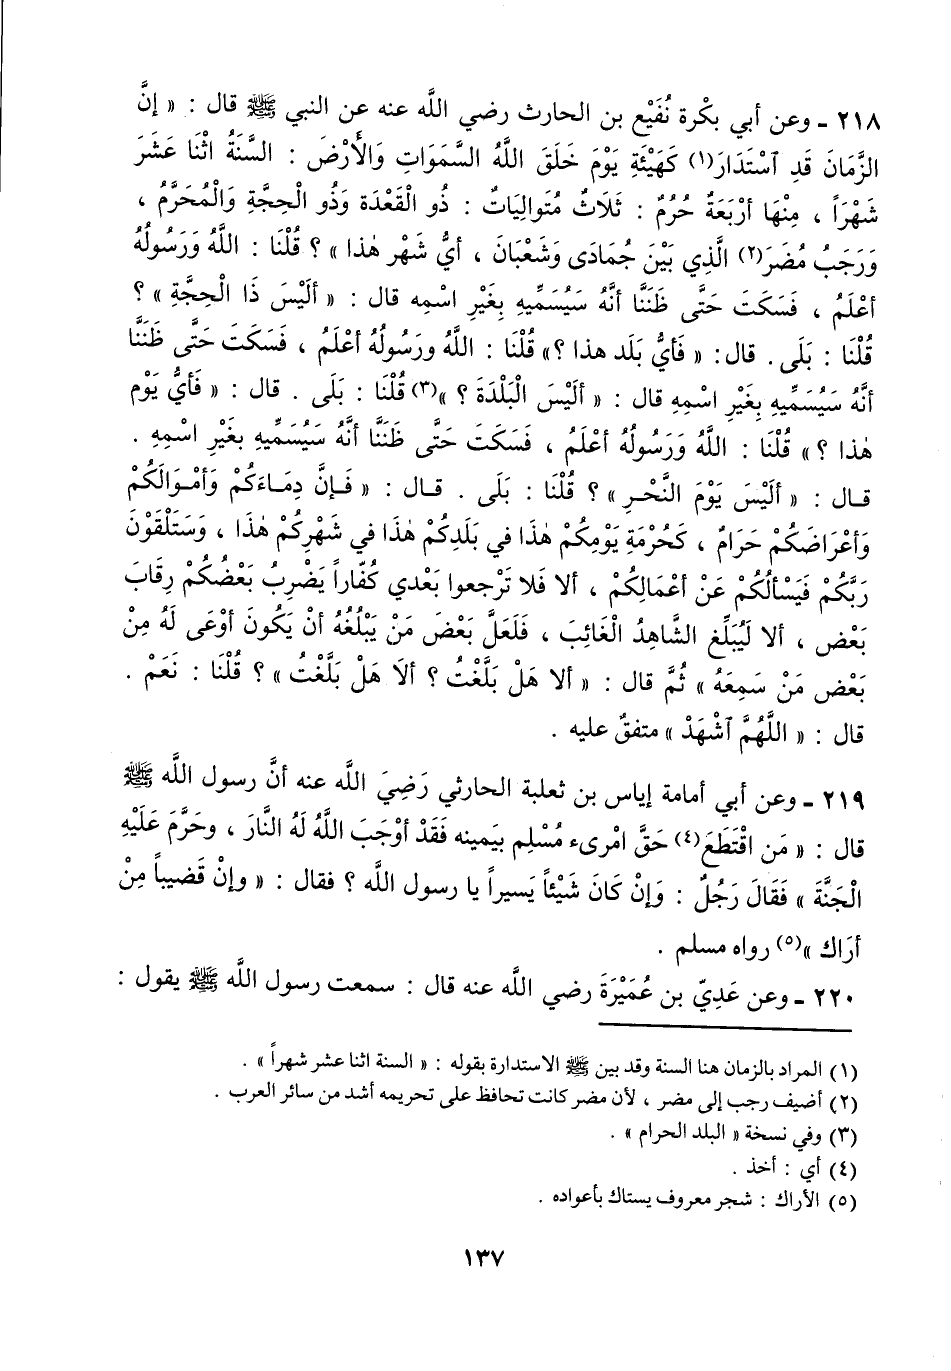 ٢١٨ ـ وعن أبي بكْرة نُفَيْع بن الحارث رضي اللَّه عنه عن النبي ﷺ قال : « إنَّ
الزَّمَانَ قَدِ ٱسْتَدَارَ(١) كَهَيْئَةِ يَوْمَ خَلَقَ اللَّهُ السَّمَوَاتِ وَالأَرْضَ : السَّنَةُ اثْنَا عَشَرَ
شَهْرَاً ، مِنْهَا أرْبَعَةٌ حُرُمٌ : ثَلَاثٌ مُتَوالِيَاتٌ : ذُو الْقَعْدَة وَذُو الْحِجَّةِ وَالْمُحَرَّمُ ،
وَرَجَبُ مُضَرَ(٢) الَّذِي بَيْنَ جُمَادَى وَشَعْبَانَ ، أيُّ شَهْر هٰذا » ؟ قُلْنَا : اللَّهُ وَرَسُولُهُ
أعْلَمُ ، فَسَكَتَ حَتَّى ظَنَنَّا أنَّهُ سَيُسَمِّيهِ بِغَيْرِ اسْمِه قال : « ألَيْسَ ذَا الْحِجَّةِ » ؟
قُلْنَا : بَلَى . قال : « فَأيُّ بَلَد هذا ؟ » قُلْنَا : اللَّهُ ورَسُولُهُ أعْلَمُ ، فَسَكَتَ حَتَّى ظَنَنَّا
أنَّهُ سَيُسَمِّيهِ بِغَيْرِ اسْمِهِ قال : « ألَيْسَ الْبَلْدَةَ ؟ »(٣) قُلْنَا : بَلَى . قال : « فَأيُّ يَوْم
هٰذا ؟ » قُلْنَا : اللَّهُ وَرَسُولُهُ أعْلَمُ ، فَسَكَتَ حَتَّى ظَنَنَّا أنَّهُ سَيُسَمِّيهِ بِغَيْرِ اسْمِهِ .
قـال : « ألَيْسَ يَوْمَ النَّحْـرِ » ؟ قُلْنَا : بَلَى . قـال : « فَـإنَّ دِمَـاءَكُمْ وَأمْـوَالَكُمْ
وَأعْرَاضَكُمْ حَرَامٌ ، كَحُرْمَةِ يَوْمِكُمْ هٰذَا في بَلَدِكُمْ هٰذَا في شَهْرِكُمْ هٰذَا ، وَسَتَلْقَوْنَ
رَبَّكُمْ فَيَسْألُكُمْ عَنْ أعْمَالِكُمْ ، ألا فَلا تَرْجعوا بَعْدي كُفّاراً يَضْرِبُ بَعْضُكُمْ رِقَابَ
بَعْض ، ألا لَيُبَلِّغِ الشَّاهِدُ الْغَائِبَ ، فَلَعَلَّ بَعْضَ مَنْ يَبْلُغُهُ أنْ يَكُونَ أوْعَى لَهُ مِنْ
بَعْض مَنْ سَمِعَهُ » ثُمَّ قال : « ألا هَلْ بَلَّغْتُ ؟ ألاَ هَلْ بَلَّغْتُ » ؟ قُلْنَا : نَعَمْ .
قال : « اللَّهُمَّ ٱشْهَدْ » متفقٌ عليه .
٢١٩ ـ وعن أبي أمامة إياس بن ثعلبة الحارثي رَضِيَ اللَّه عنه أنَّ رسول اللَّه ﷺ
قال : « مَن اقْتَطَعَ(٤) حَقَّ امْرىء مُسْلِم بيَمينه فَقَدْ أوْجَبَ اللَّهُ لَهُ النَّارَ ، وحَرَّمَ عَلَيْهِ
الْجَنَّةَ » فَقَالَ رَجُلٌ : وَإنْ كَانَ شَيْئاً يَسيراً يا رسول اللَّه ؟ فقال : « وإنْ قَضيباً مِنْ
أرَاك »(٥) رواه مسلم .
٢٢٠ ـ وعن عَدِيّ بن عُمَيْرَةَ رضي اللَّه عنه قال : سمعت رسول اللَّه ﷺ يقول :
(١) المراد بالزمان هنا السنة وقد بين ﷺ الاستدارة بقوله : « السنة اثنا عشر شهراً » .
(٢) أضيف رجب إلى مضر ، لأن مضر كانت تحافظ على تحريمه أشد من سائر العرب .
(٣) وفي نسخة « البلد الحرام » .
(٤) أي : أخذ .
(٥) الأراك : شجر معروف يستاك بأعواده .
١٣٧